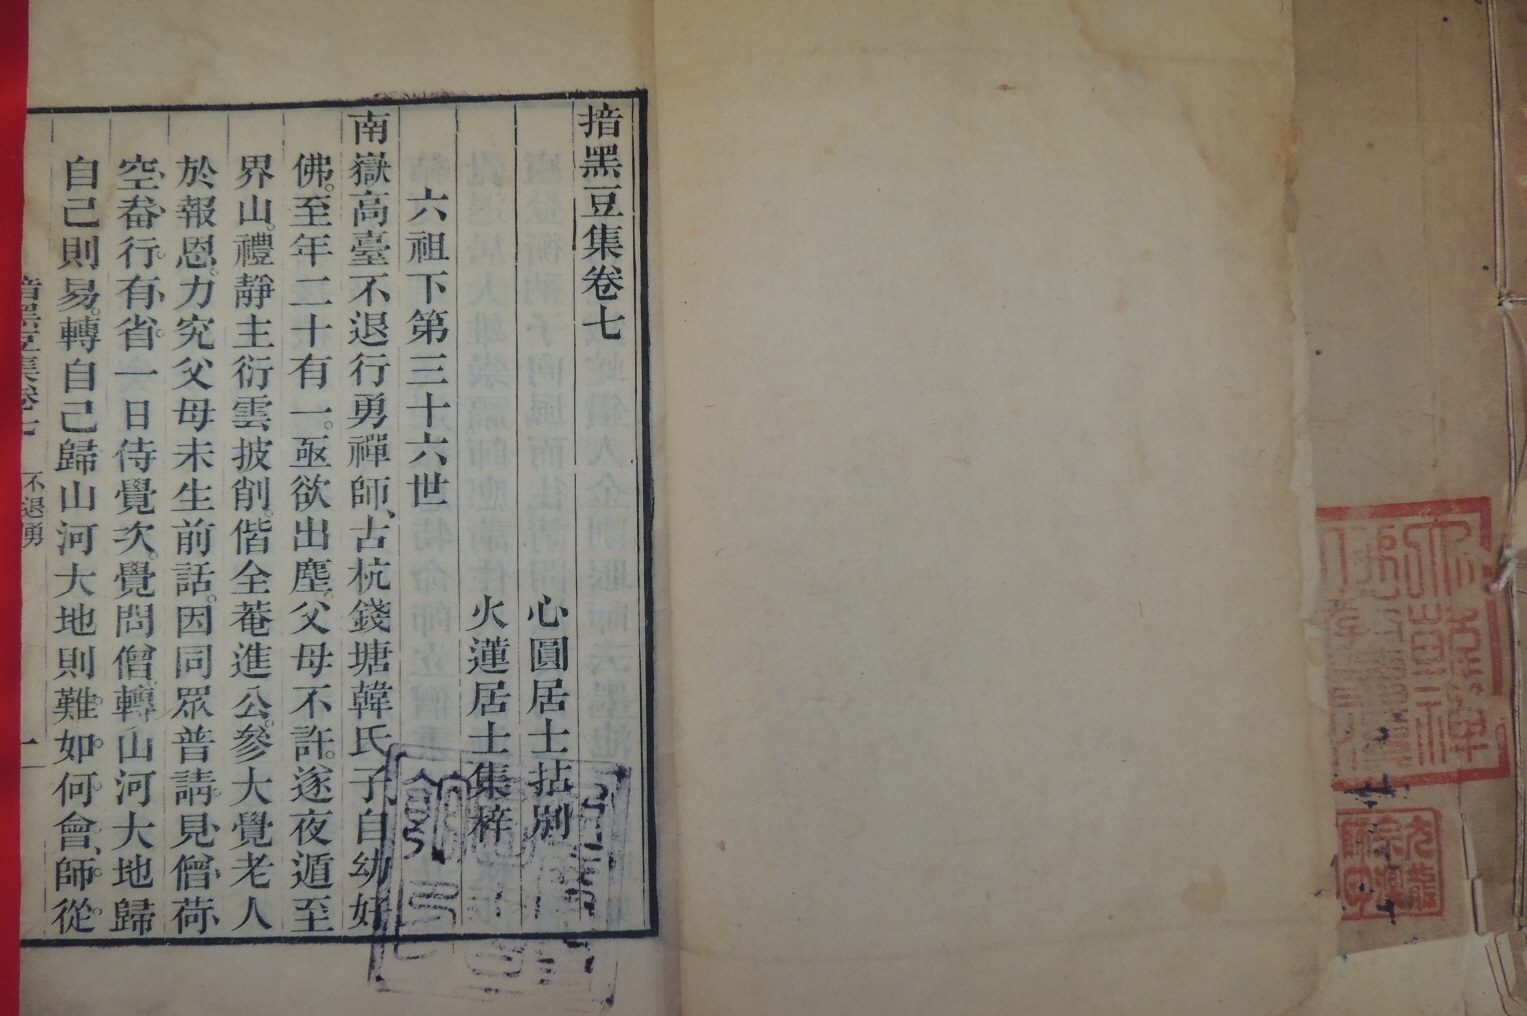 揞黑豆集卷七
心圓居士拈別
火蓮居士集梓
六祖下第三十六世
南嶽高臺不退行勇禪師、古杭錢塘韓氏子自幼好
佛。至年二十有一。亟欲出塵。父母不許。遂夜遁至
界山。禮靜主衍雲披削。偕全菴進公。參大覺老人
於報恩。力究父母未生前話。因同眾普請。見僧荷
空畚行。有省一日侍覺次。覺問僧轉山河大地歸
自己則易。轉自己歸山河大地則難。如何會、師。從
揞黑豆集卷七
不退勇
一